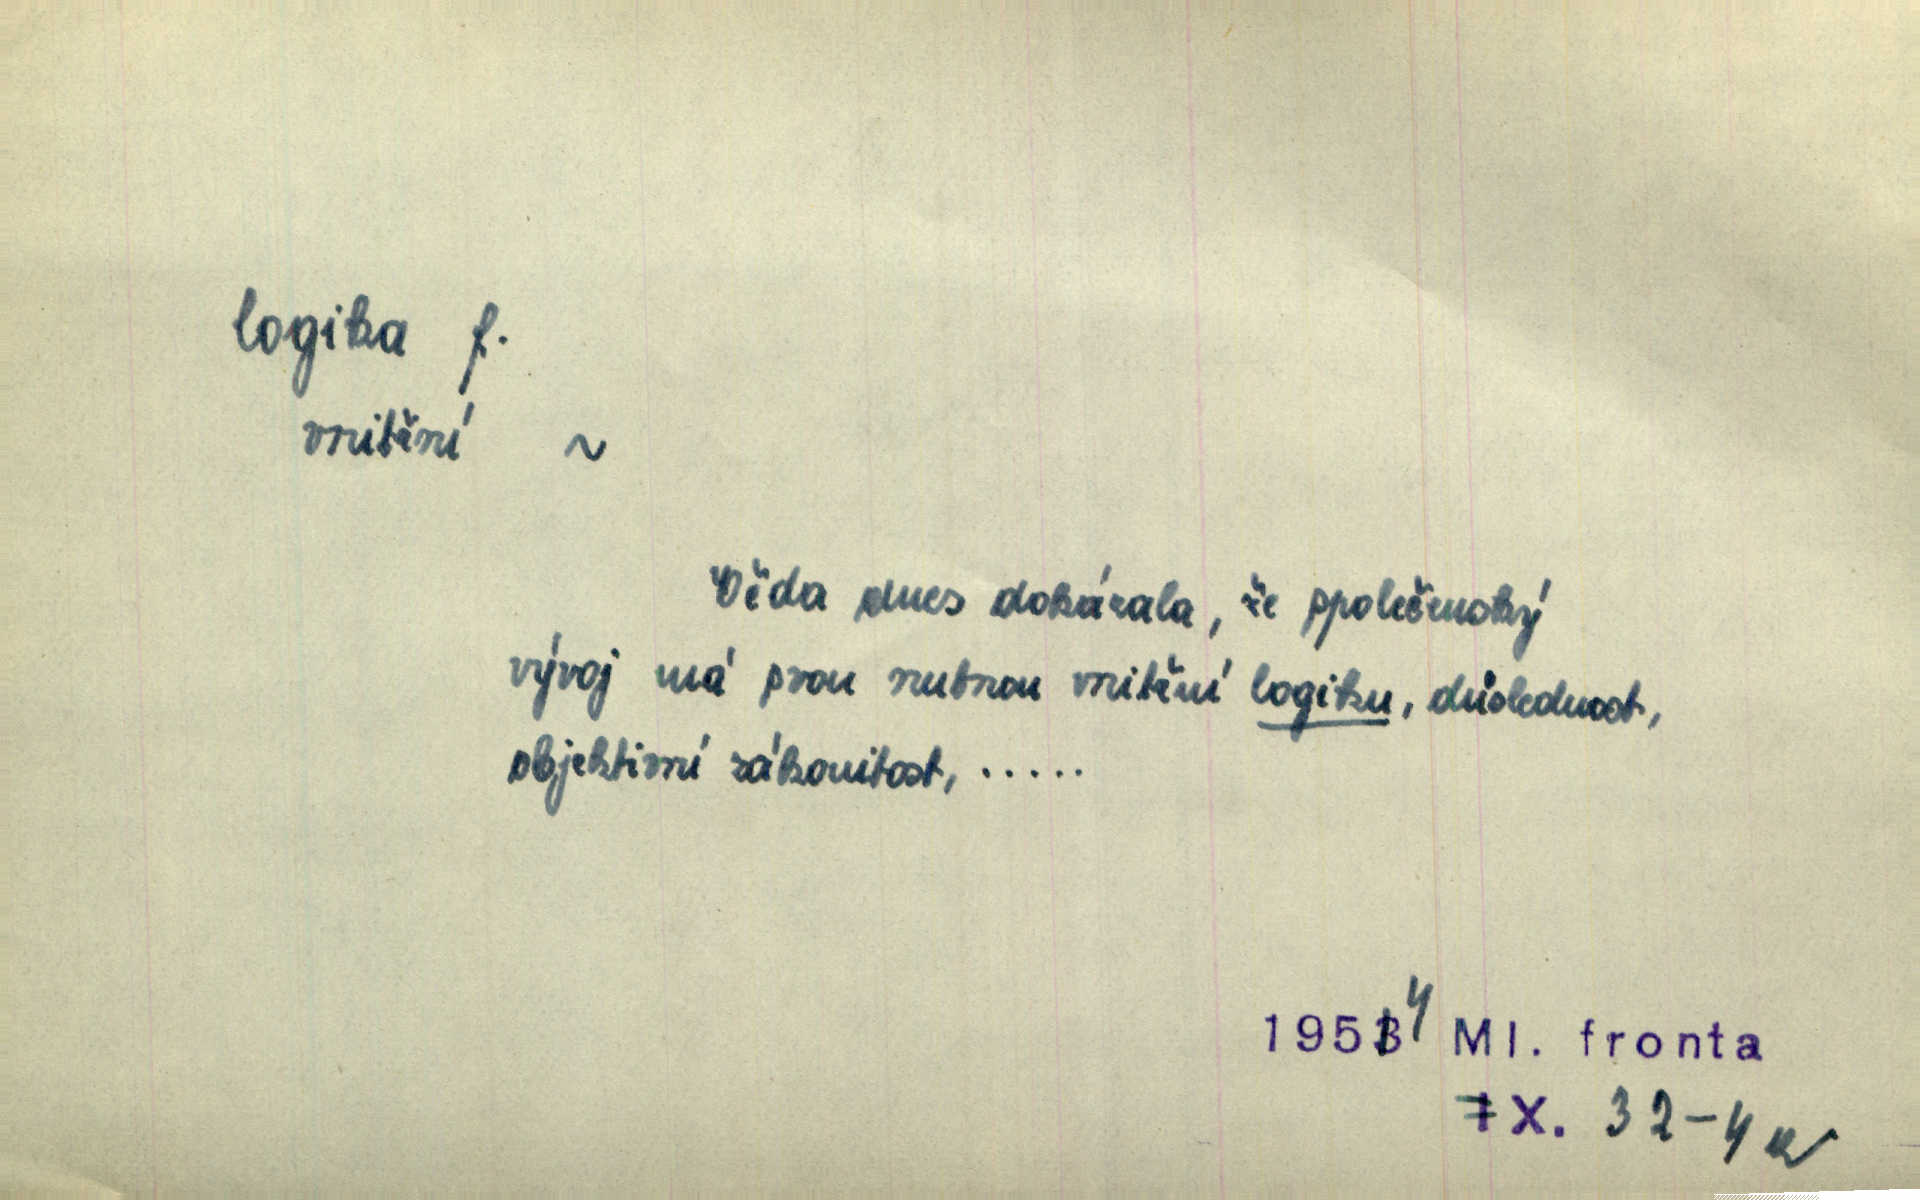 logika f.
vnitřní ~
Věda dnes dokázala, že společenský
vývoj má svou nutnou vnitřní logiku, důslednost,
objektivní zákonitost, .....
1953 4 Ml. fronta
X. 32-4